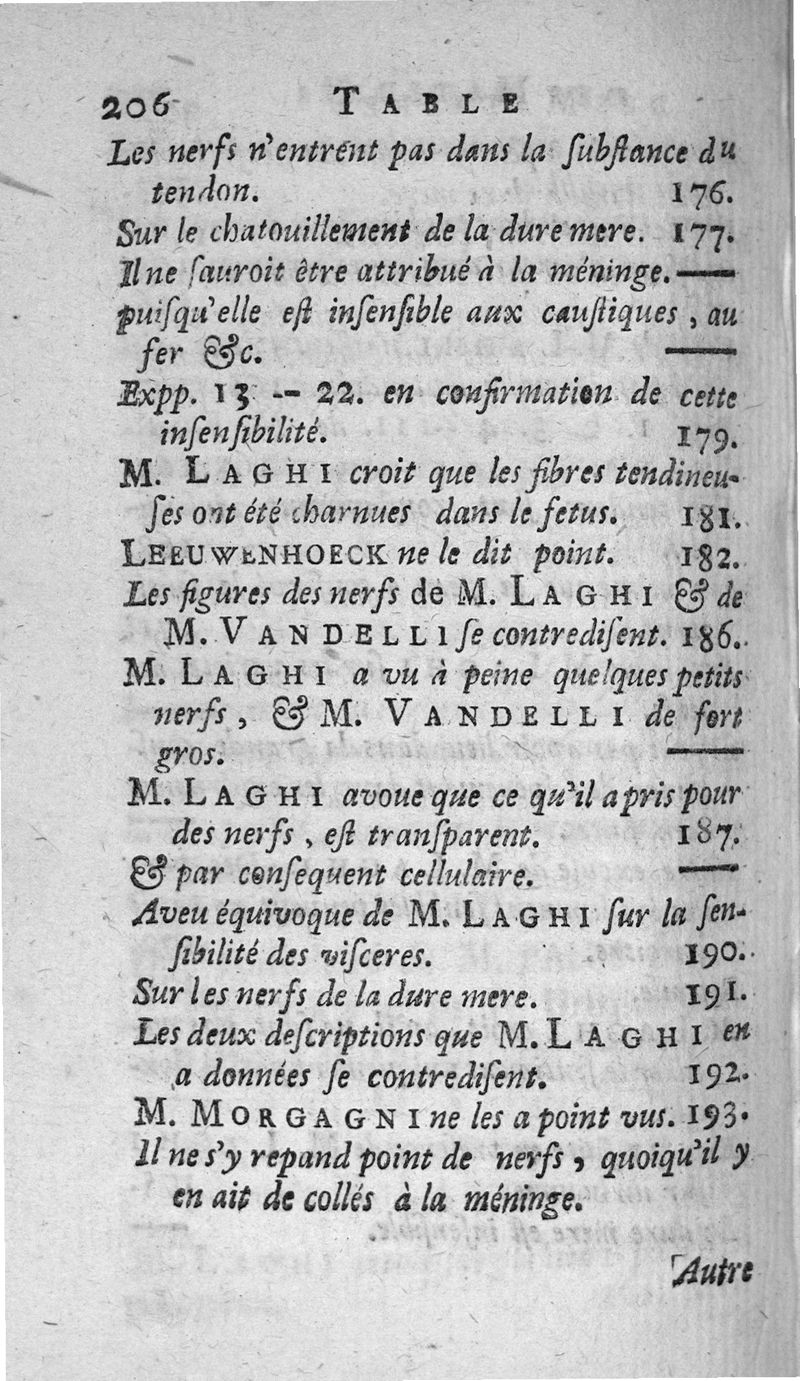 206 TABLE
Les nerfs n'entrent pas dans la ſubſtance du
tendon. 176.
Sur le chatouillement de la dure mere. 177.
Il ne ſauroit être attribué à la méninge. ——
puiſqu'elle eſt inſenſible aux cauſtiques, au
fer &c. ——
Expp. 13 -- 22. en confirmation de cette
inſenſibilité. 179.
M. LAGHI croit que les fibres tendineu-
ſes ont été charnues dans le fetus. 181.
LEEUWENHOECK ne le dit point. 182.
Les figures des nerfs de M. LAGHI & de
M. VANDELLI ſe contrediſent. 186.
M. LAGHI a vu à peine quelques petits
nerfs, & M. VANDELLI de fort
gros. ——
M. LAGHI avoue que ce qu'il a pris pour
des nerfs, eſt tranſparent. 187.
& par conſequent cellulaire. ——
Aveu équivoque de M. LAGHI ſur la ſen-
ſibilité des viſceres. 190.
Sur les nerfs de la dure mere. 191.
Les deux deſcriptions que M. LAGHI en
a données ſe contrediſent. 192.
M. MORGAGNI ne les a point vus. 193.
Il ne s'y repand point de nerfs, quoiqu'il y
en ait de collés à la méninge.
Autre